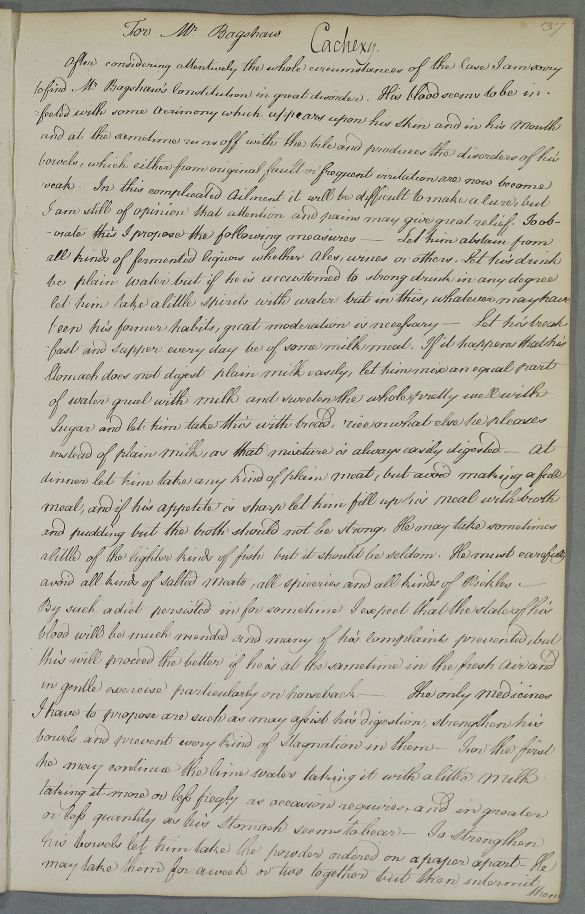 37
For Mr Bagshaw
Cachexy.
After considering attentively the whole circumstances of the Case I am sorry
to find Mr Bagshaw's Constitution in great disorder. His blood seems to be in-
-fected with some acrimony which appears upon his skin and in his mouth
and at the sametime runs off with the bile and produces the disorders of his
bowels, which either from original fault or frequent irritation are now become
weak. In this complicated Ailment it will be difficult to make a cure, but
I am still of opinion that attention and pains may give great relief. To ob-
-viate this I propose the following measures — Let him abstain from
all kinds of fermented liquors whether Ales, wines or others. Let his drink
be plain water but if he is accustomed to strong drink in any degree
let him take a little spirits with water but in this, whatever may have
been his former habits, great moderation is necessary — Let his break-
-fast and supper every day be of some milk meat. If it happens that his
Stomach does not digest plain milk easily, let him mix an equal part
of water gruel with milk and sweeten the whole pretty well with
Sugar and let him take this with bread, rice or what else he pleases
instead of plain milk, as that mixture is always easily digested — At
dinner let him take any kind of plain meat, but avoid making a full
meal, and if his appetite is sharp let him fill up his meal with broth
and pudding but the broth should not be strong. He may take sometimes
a little of the lighter kinds of fish but it should be seldom. He must carefully
avoid all kinds of salted meats, all spiceries and all kinds of Pickles. —
By such a diet persisted in for sometime I expect that the state of his
blood will be much mended and many of his complaints prevented, but
this will proceed the better if he is at the sametime in the fresh air and
in gentle exercise particularly on horseback — The only medicines
I have to propose are such as may assist his digestion, strengthen his
bowels and prevent every kind of Stagnation in them — For the first
he may continue the lime water taking it with a little milk
taking it more or less freely as occasion requires, and in greater
or less quantity as his Stomach seems to bear — To strengthen
his bowels let him take the powder ordered on a paper apart — He
may take them for a week or two together but then intermit
them